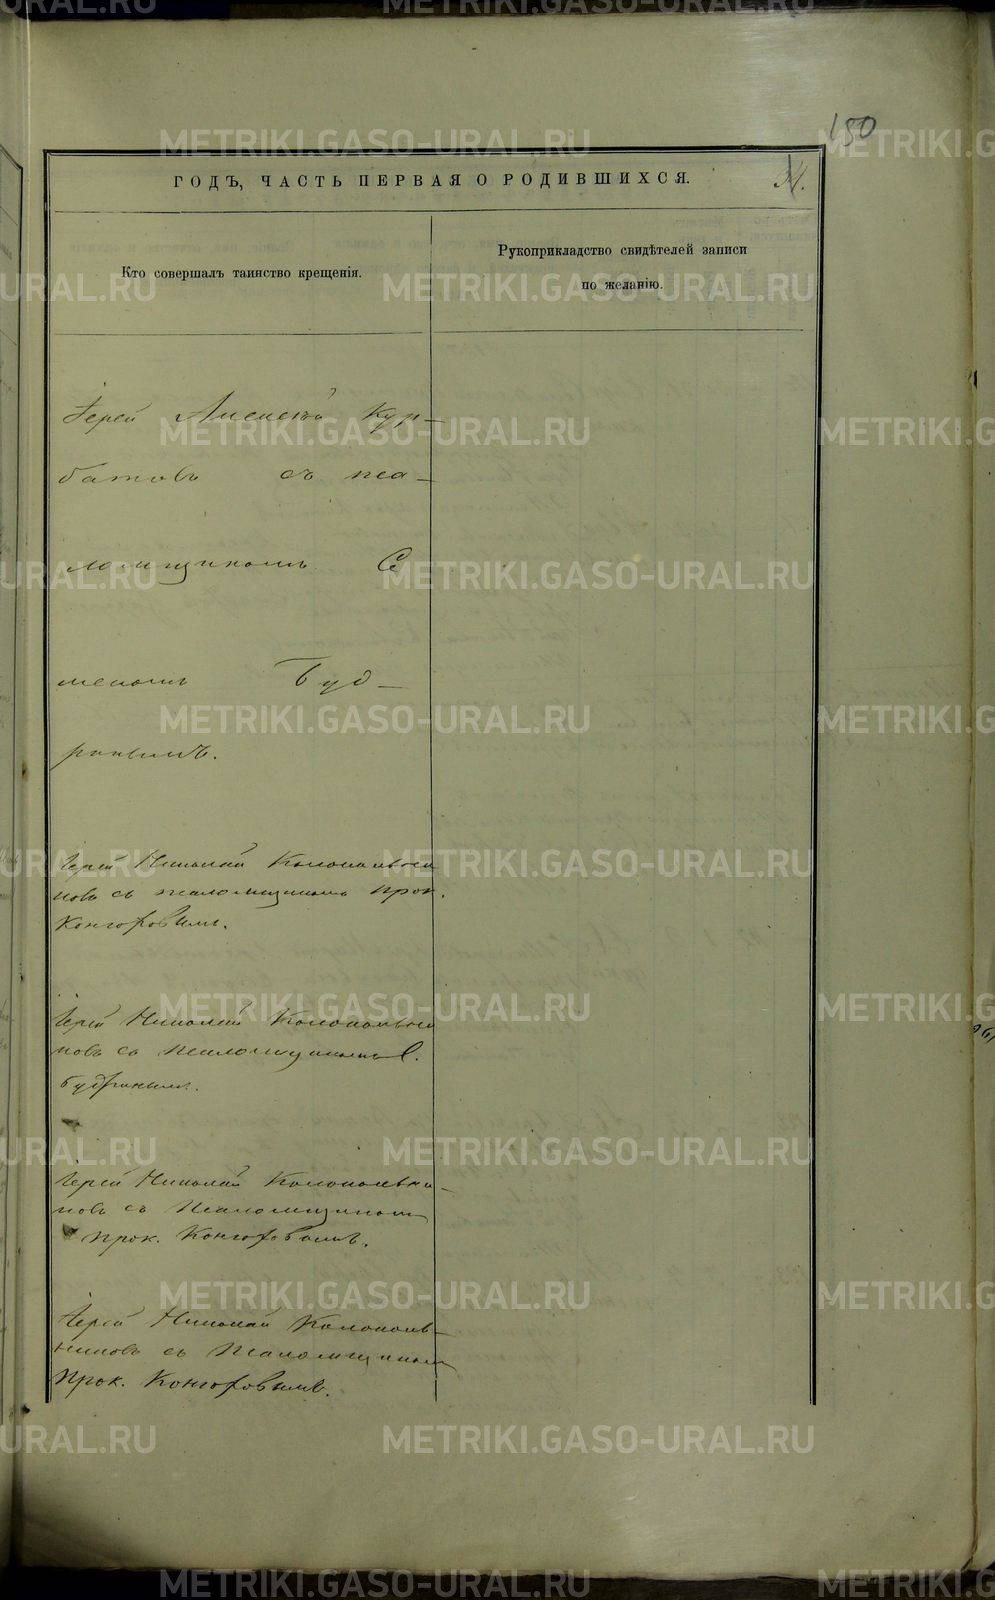 150
ГОДЪ, ЧАСТЬ ПЕРВАЯ О РОДИВШИХСЯ.
34.
Кто совершалъ таинство крещенія.
Рукоприкладство свидѣтелей записи
по желанію.
Іерей Алексѣй Кур-
батовъ съ пса-
ломщикомъ Се
меномъ Буд-
ринымъ.
Іерей Николай Колокольни
ковъ съ псаломщикомъ Прок.
Конгоровымъ.
Іерей Николай Колокольни
ковъ съ псаломщикомъ С.
Будринымъ.
Іерей Николай Колокольни-
ковъ съ Псаломщикомъ
Прок. Конгоровымъ.
Іерей Николай Колоколь-
никовъ съ Псаломщикомъ
Прок. Конгоровымъ.
METRIKI.GASO-URAL.RU